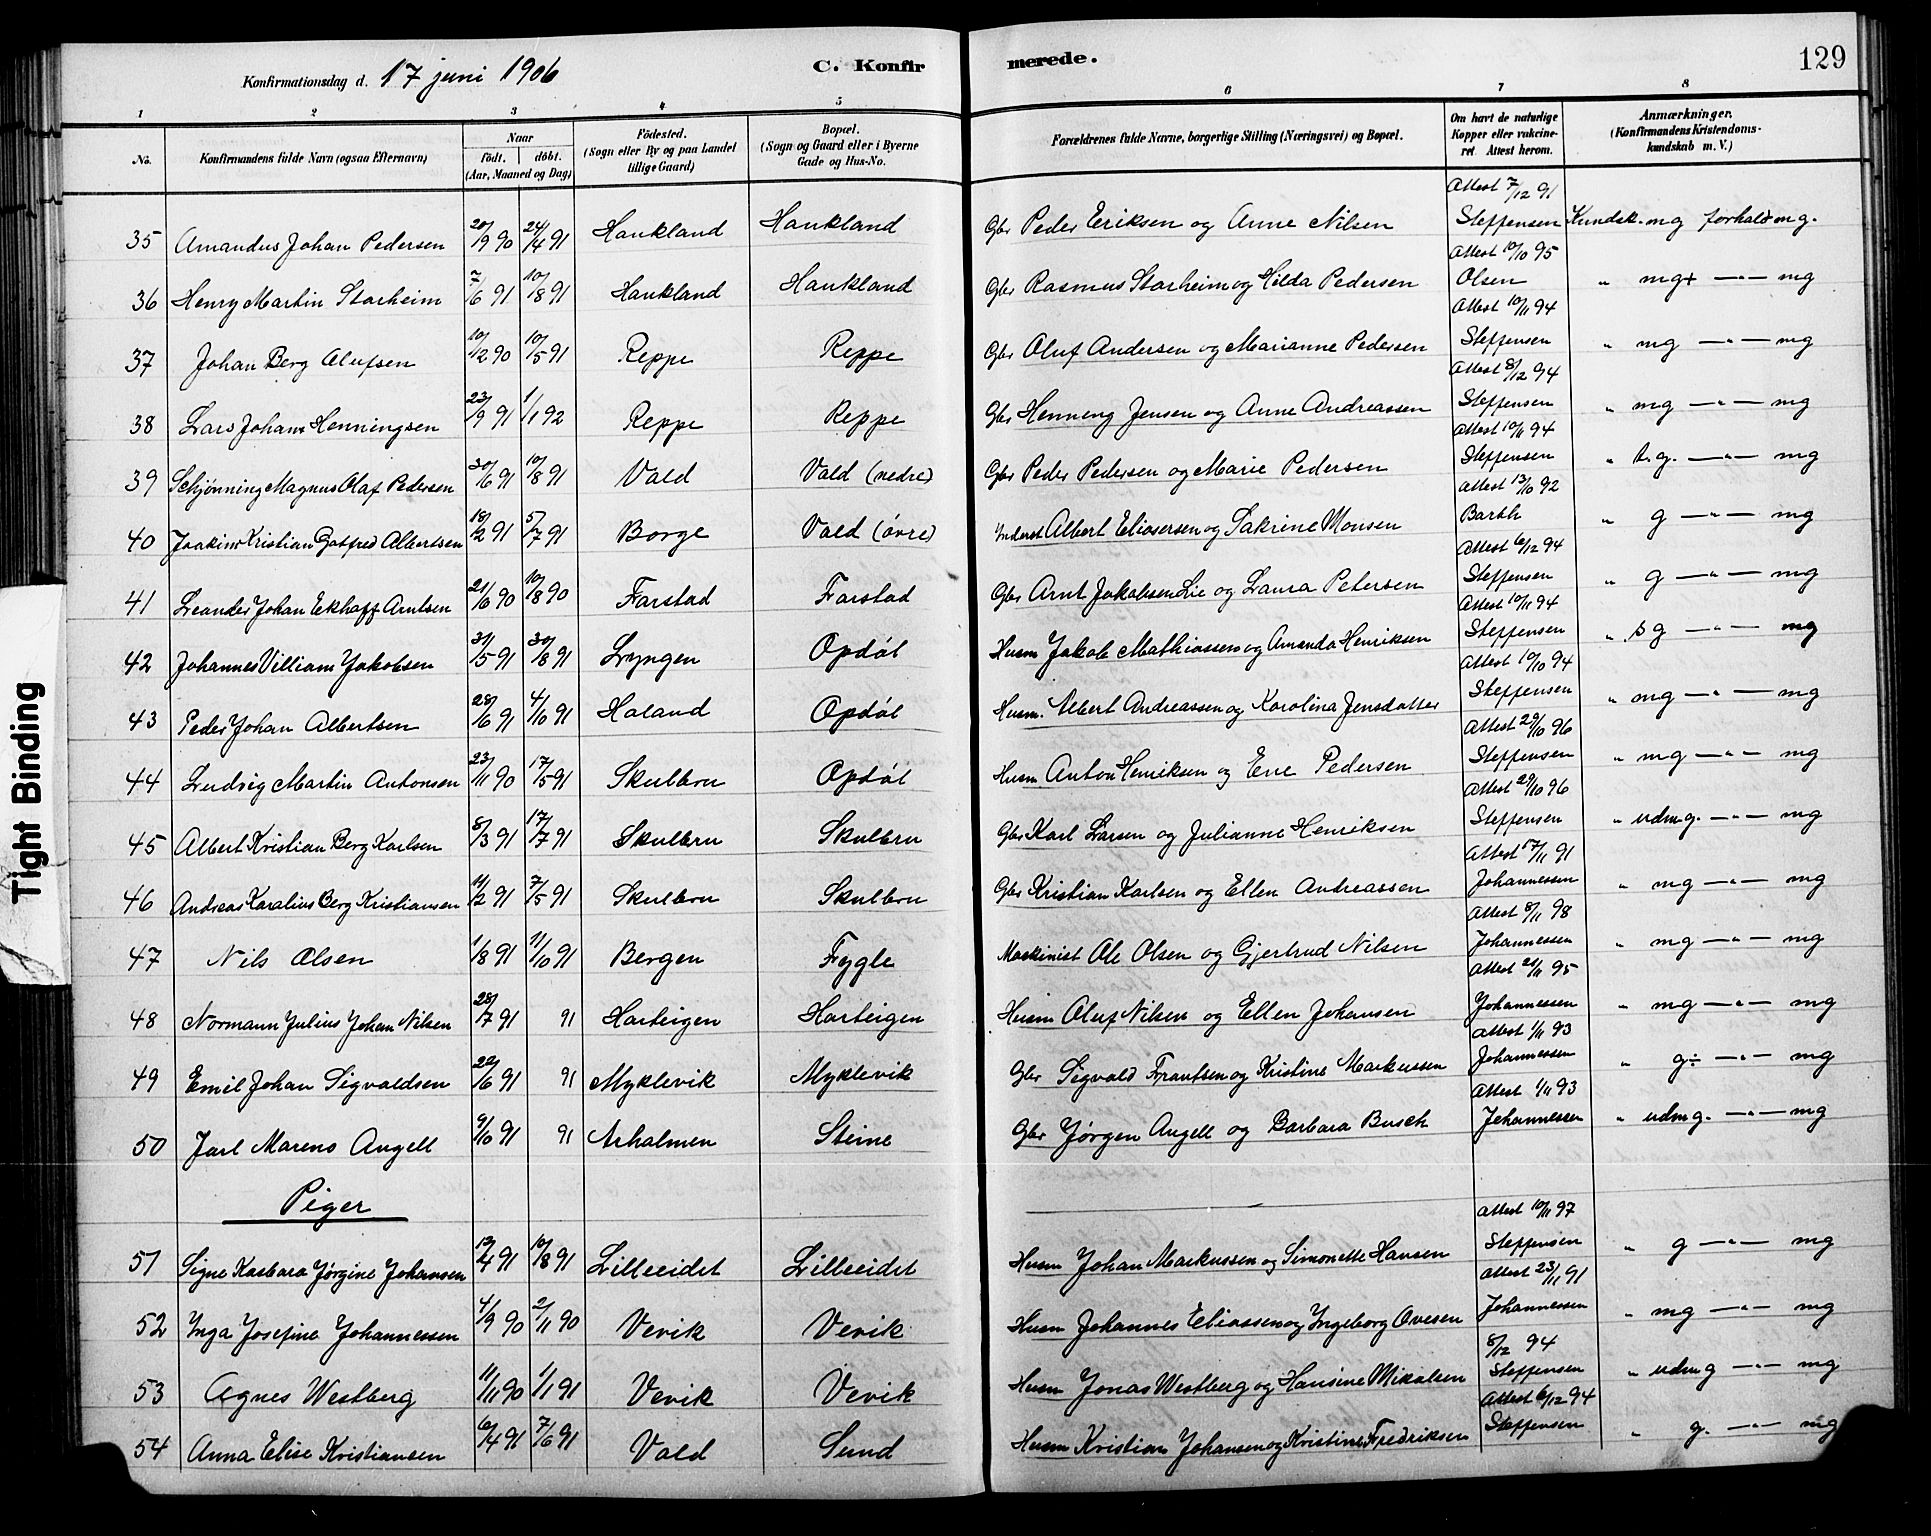 Konfirmationsdag d. 17 juni 1906 C. Konfirmerede. 129
1 2 3 4 5 6 7 8
No. Konfirmandens fulde Navn (ogsaa Efternavn) Naar født. døbt. (Aar, Maaned og Dag) Fødested. (Sogn eller By og paa Landet tillige Gaard) Bopæl. (Sogn og Gaard eller i Byerne Gade og Hus-No. Forældrenes fulde Navne, borgerlige Stilling (Næringsvei) og Bopæl. Om havt de naturlige Kopper eller vakcineret. Attest herom. Anmærkninger. (Konfirmandens Kristendomskundskab m. V.)
35 Amandus Johan Pedersen 20/9 90 24/4 91 Haukland Haukland Gbr Peder Eriksen og Anne Nilsen Attest 7/12 91 Steffensen Kundsk. mg forhold mg.
36 Henry Martin Starheim 7/6 91 10/8 91 Haukland Haukland Gbr Rasmus Starheim og Hilda Pedersen Attest 10/10 95 Olsen " mg+ —"— mg
37 Johan Berg Olufsen 10/12 90 10/5 91 Reppe Reppe Gbr Oluf Andersen og Marianne Pedersen Attest 10/11 94 Steffensen " mg —"— mg
38 Lars Johan Henningsen 23/9 91 1/1 92 Reppe Reppe Gbr Henning Jensen og Anne Andreassen Attest 8/12 94 Steffensen " mg —"— mg
39 Schjønning Magnus Olaf Pedersen 30/6 91 10/8 91 Vald Vald (nedre) Gbr Peder Pedersen og Marie Pedersen Attest 10/11 94 Steffensen " t.g. —"— mg
40 Joakim Kristian Gotfred Albertsen 18/2 91 5/7 91 Borge Vald (øvre) Inderst Albert Eliasersen og Sakrine Monsen Attest 13/10 92 Barth " g —"— mg
41 Leander Johan Ekhoff Arntsen 21/6 90 10/8 90 Farstad Farstad Gbr Arnt Jakobsen Lie og Laura Petersen Attest 6/12 94 Steffensen " g —"— mg
42 Johannes Villiam Jakobsen 31/5 91 30/8 91 Lyngen Opdøl Husm Jakob Mathiassen og Amanda Henriksen Attest 10/11 94 Steffensen " sg —"— mg
43 Peder Johan Albertsen 28/6 91 4/10 91 Haland Opdøl Husm. Albert Andreassen og Karolina Jensdatter Attest 10/10 94 Steffensen " mg —"— mg
44 Ludvig Martin Antonsen 23/11 90 17/5 91 Skulbru Opdøl Husm Anton Henriksen og Ene Pedersen Attest 29/10 96 Steffensen " mg —"— mg
45 Albert Kristian Berg Karlsen 8/3 91 17/7 91 Skulbru Skulbru Gbr Karl Larsen og Julianne Henriksen Attest 29/10 96 Steffensen " udm g. —"— mg
46 Andreas Karalius Berg Kristiansen 11/2 91 7/5 91 Skulbru Skulbru Gbr Kristian Karlsen og Ellen Andreassen Attest 17/11 91 Johannessen " mg —"— mg
47 Nils Olsen 1/8 91 11/10 91 Bergen Fygle Maskinist Ole Olsen og Gjertrud Nilsen Attest 8/11 98 Johannessen " mg —"— mg
48 Normann Julius Johan Nilsen 28/7 91 91 Harteigen Harteigen Husm Oluf Nilsen og Ellen Johansen Attest 21/11 95 Johannessen " mg —"— mg
49 Emil Johan Sigvaldsen 22/6 91 91 Myklevik Myklevik Gbr Sigvald Frantsen og Kristine Markussen Attest 1/11 93 Johannessen " g÷ —"— mg
50 Jarl Marens Angell 9/10 91 91 Arholmen Steine Gbr Jørgen Angell og Barbara Busch Attest 1/11 93 Johannessen " udm g. —"— mg
Piger
51 Signe Kasbara Jørgine Johansen 13/4 91 10/8 91 Lilleeidet Lilleeidet Husm Johan Markussen og Simonette Hansen Attest 10/11 97 Steffensen " g —"— mg
52 Inga Josefine Johannessen 4/9 90 2/11 90 Vevik Vevik Husm Johannes Eliassen og Ingeborg Ovesen Attest 23/11 91 Johannessen " mg —"— mg
53 Agnes Westberg 11/11 90 1/1 91 Vevik Vevik Husm Jonas Westberg og Hansine Mikalsen 8/12 94 Steffensen " udm g —"— mg
54 Anna Elise Kristiansen 6/4 91 7/6 91 Vald Sund Husm Kristian Johansen og Kristine Fredriksen Attest 6/12 94 Steffensen " g. —"— mg
Tight Binding